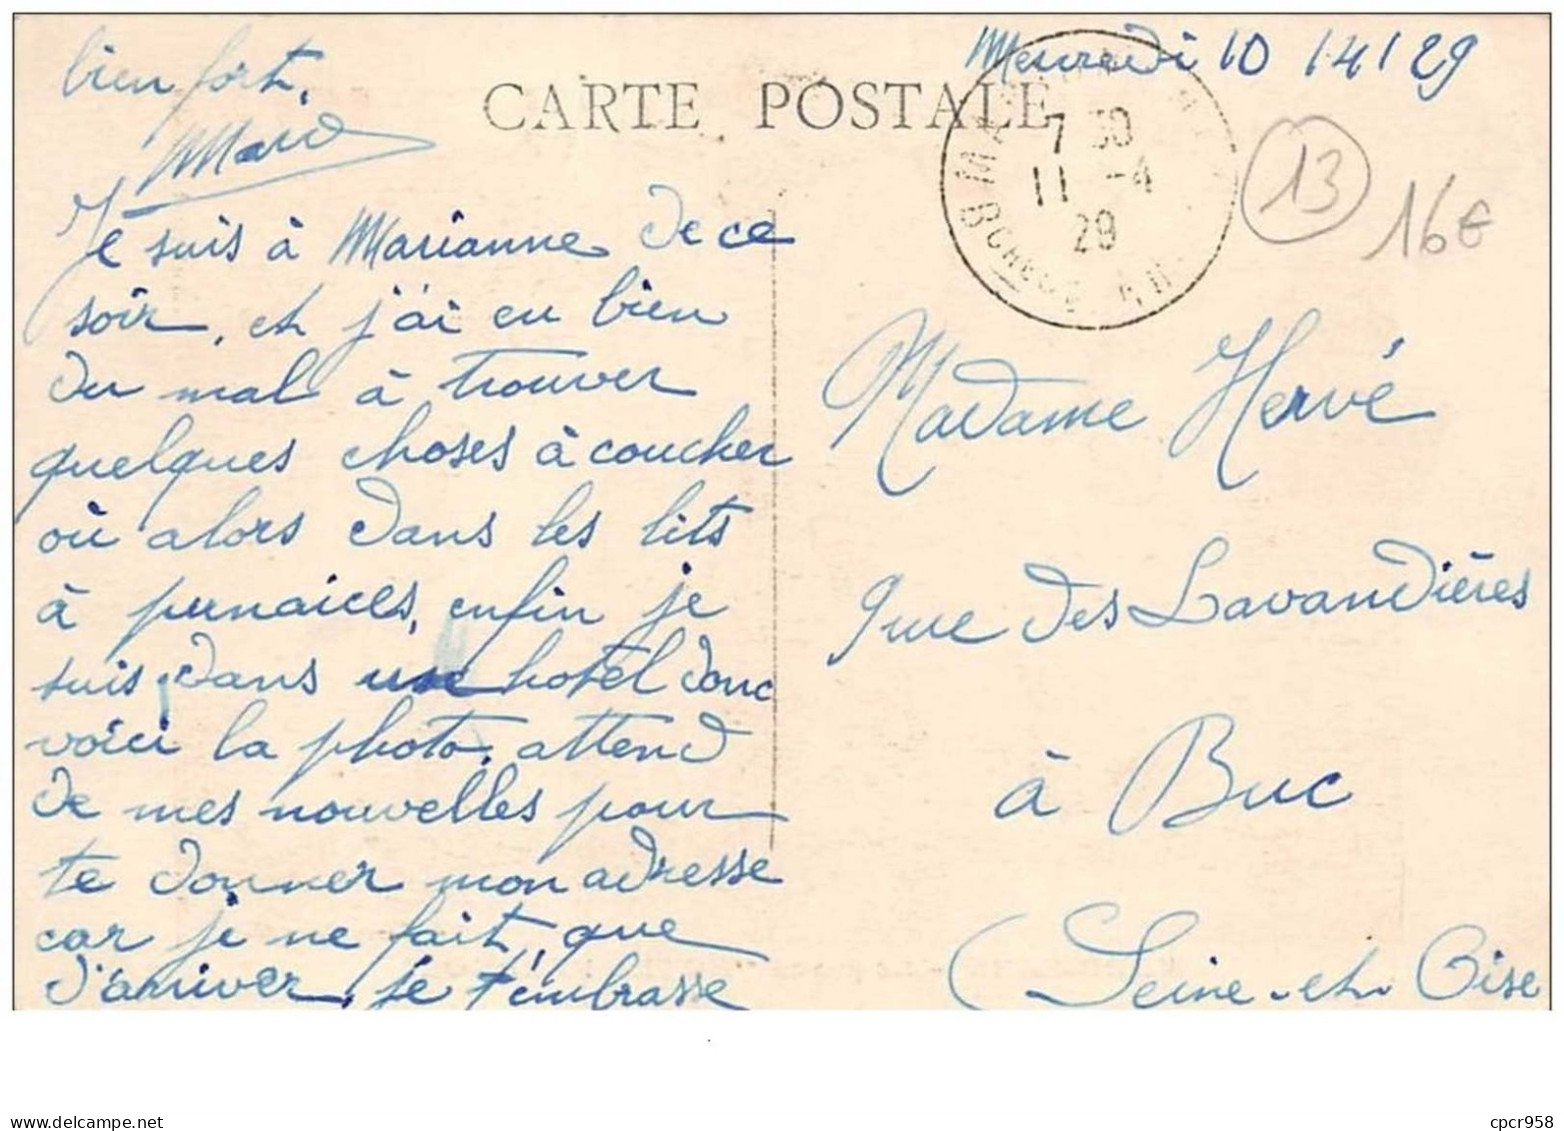 Mercredi 10 /4/ 29
CARTE POSTALE
7 30
11 -4
29
13
16€
Je suis à Marianne de ce
soir, et j'ai eu bien
du mal à trouver
quelques choses à coucher
où alors dans les lits
à punaices, enfin je
suis dans hotel donc
voici la photo, attend
de mes nouvelles pour
te donner mon adresse
car je ne fait, que
d'arriver, je t'embrasse
bien fort,
Madame Hervé
rue des Lavandières
à Buc
(Seine-et-Oise
delcampe.net
cpcr958